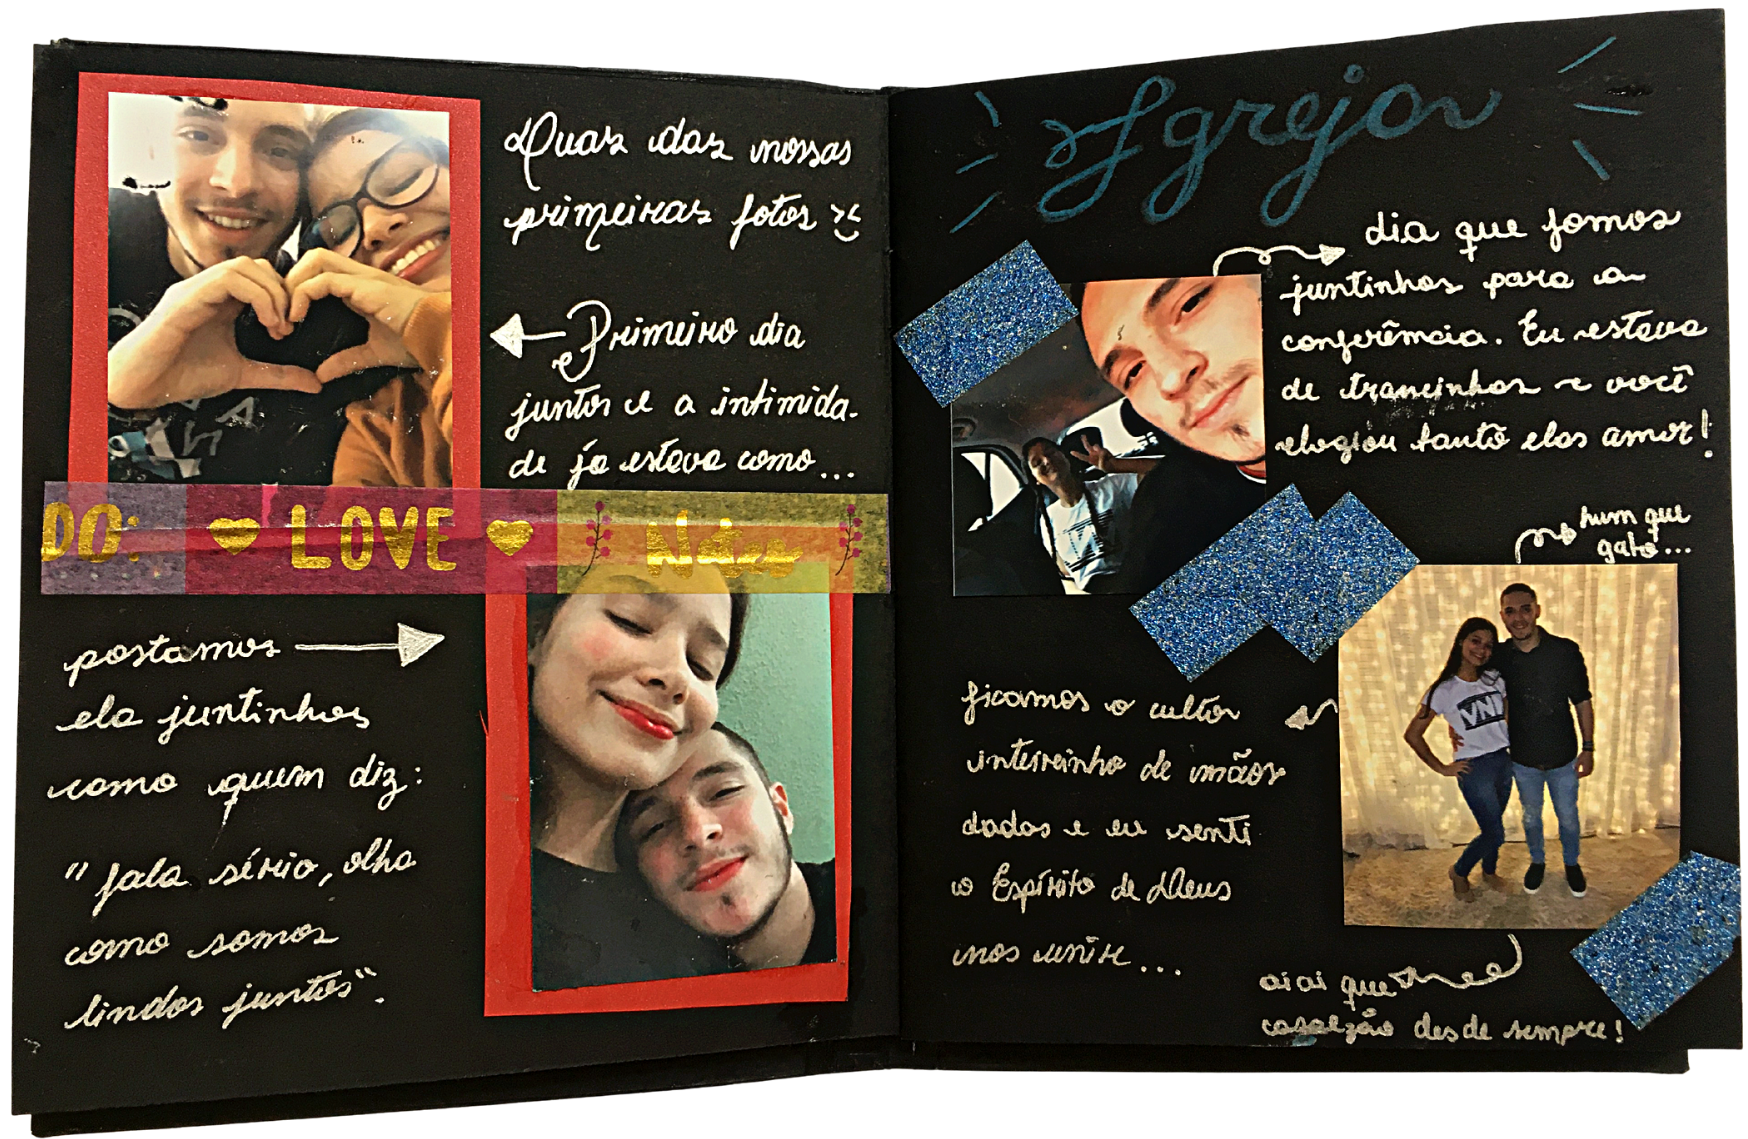 Duas das nossas
primeiras fotos :)
Primeiro dia
juntos e a intimida-
de ja estava como...
DO: LOVE Notes
postamos
ela juntinhos
como quem diz:
"fala sério, olha
como somos
lindos juntos".
Igreja
dia que fomos
juntinhos para a
conferência. Eu estava
de trancinhas e você
elogiou tanto elas amor!
hum que
gato...
VNI
ficamos o culto
inteirinho de mãos
dadas e eu senti
o Espírito de Deus
nos unir...
ai ai que
casalzão desde sempre!